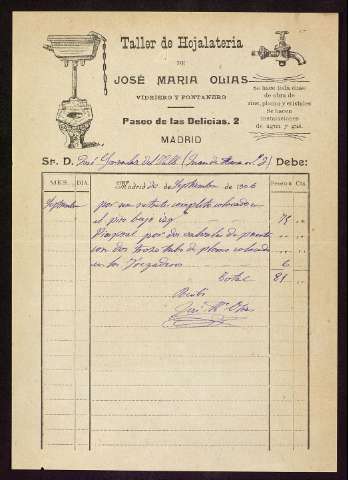 Taller de Hojalateria
DE
JOSÉ MARIA OLIAS
VIDRIERO Y FONTANERO
Paseo de las Delicias. 2
MADRID
Se hace toda clase
de obra de
zinc, plomo y cristales
Se hacen
instalaciones
de agua y gas.
Sr. D. José Gonzalez del Valle Debe:
MES. DIA. Madrid de Septiembre de 1906 Pesetas Cts.
Septiembre por un retrete completo colocado en
el piso bajo izq 75
por dos
con dos trozos tubo de plomo colocado
en los 6
Total 81
Recibí
José Mª Olias